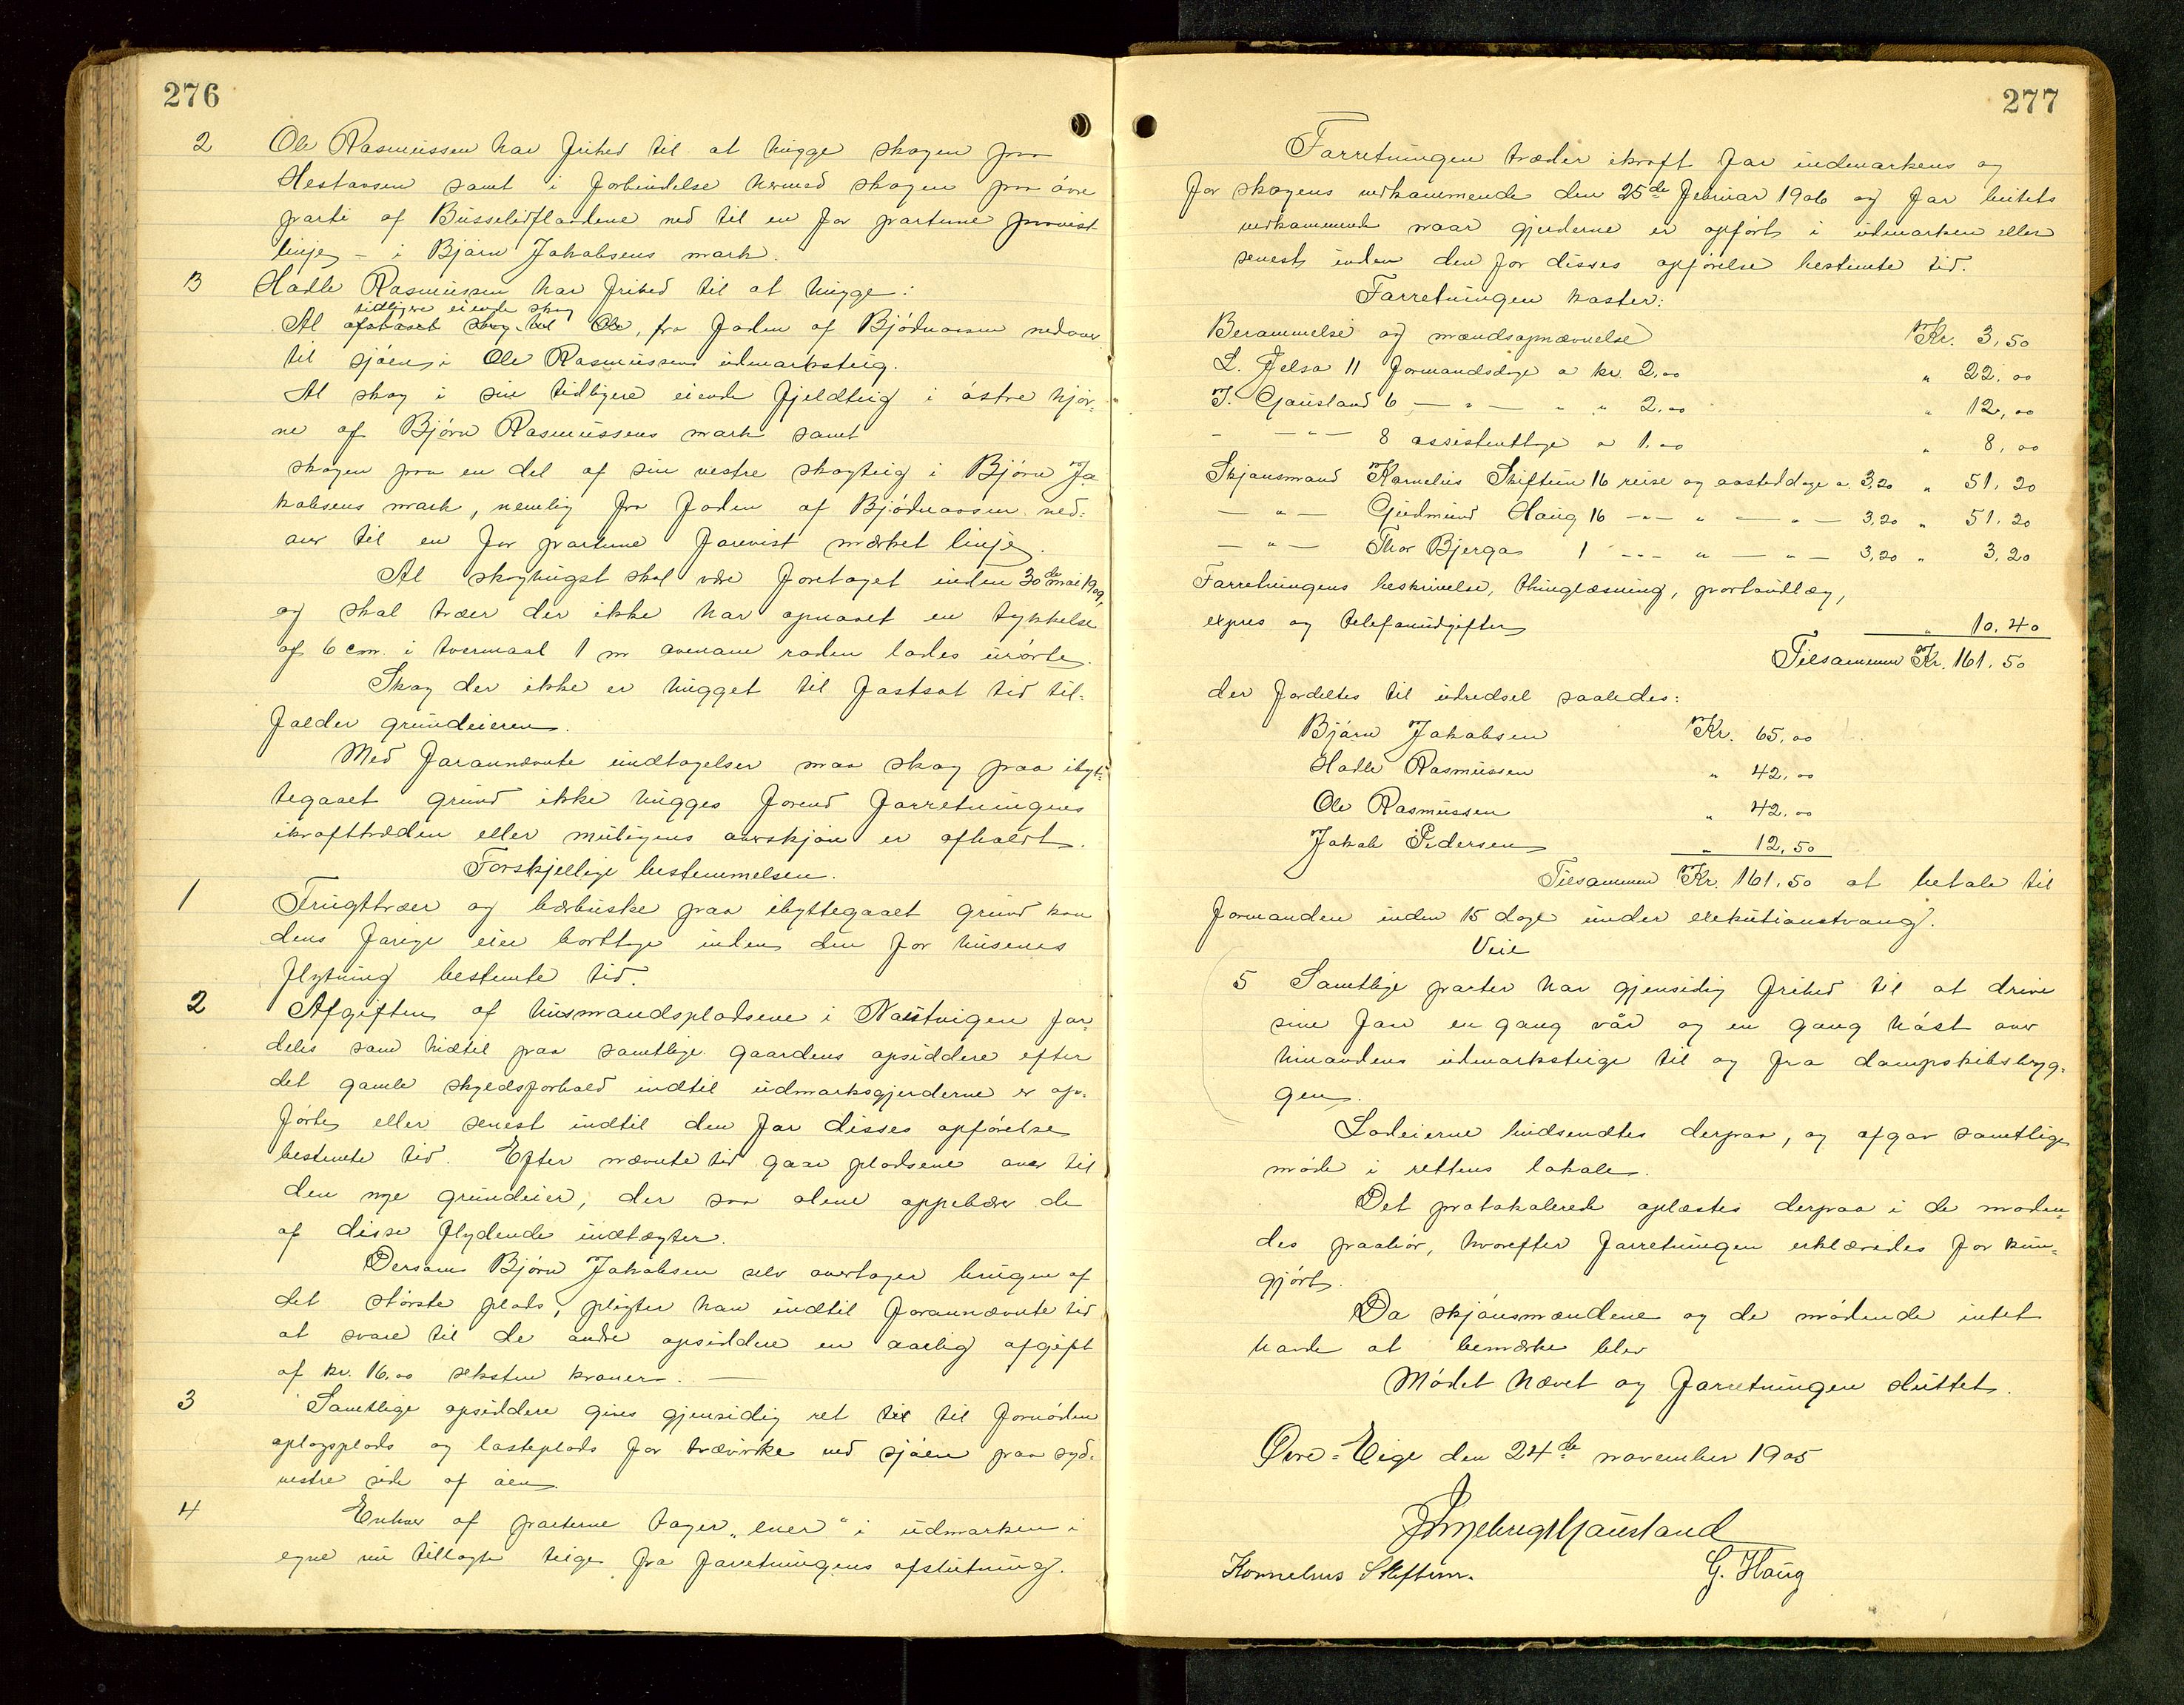 276
2 Ole Rasmussen har frihed til at hugge skogen paa
Hestaasen samt i forbindelse hermed skogen paa øvre
parti af Busselidflandene ned til en for parterne paavist
linje – i Bjørn Jakobsens mark.
3 Hadle Rasmussen har frihed til at hugge:
tidligere eiende skog
Al afstaaet skog til Ole, fra foden af Bjødnaasen nedover
til sjøen i Ole Rasmussens udmarksteig.
Al skog i sin tidligere eiende fjeldteig i østre hjør-
ne af Bjørn Rasmussens mark samt
skogen paa en del af sin vestre skogteig i Bjørn Ja
kobsens mark, nemlig fra foden af Bjødnaasen ned-
over til en for parterne forevist mærket linje.
Al skoghugst skal være foretaget inden 30de mai 1909,
og skal træer der ikke har opnaaet en tykkelse
af 6 cm. i tvermaal 1 m ovenom roden lades urørte.
Skog der ikke er hugget til fastsat tid til-
falder grundeieren.
Med forannævnte undtagelser maa skog paa ibyt-
tegaaet grund ikke hugges forend forretningens
ikrafttræden eller muligens overskjøn er afholdt.
Forskjellige bestemmelser.
1 Frugttræer og bærbuske paa ibyttegaaet grund kan
dens forige eier borttage inden den for husenes
flytning bestemte tid.
2 Afgiften af husmandspladsene i Naustvigen for-
deles som hidtil paa samtlige gaardens opsiddere efter
det gamle skyldsforhold indtil udmarksgjerderne er op-
førte eller senest indtil den for disses opførelse
bestemte tid. Efter nævnte tid gaar pladsene over til
den nye grundeier, der saa alene oppebærer de
af disse flydende indtægter.
Dersom Bjørn Jakobsen selv overtager brugen af
det største plads, pligter han indtil forannævnte tid
at svare til de andre opsiddere en aarlig afgift
af kr. 16.00 seksten kroner. —
3 Samtlige opsiddere gives gjensidig ret til til fornøden
oplagsplads og lasteplads for trævirke ved sjøen paa syd-
vestre side af åen.
4 Enhver af parterne tager „ener“ i udmarken i
egne nu tillagte teige fra forretningens afslutning.
277
Forretningen træder ikraft for indmarkens og
for skogens vedkommende den 25de februar 1906 og for beitets
vedkommende naar gjerderne er opført i udmarken eller
senest inden den for disses opførelse bestemte tid.
Forretningen koster:
Berammelse og mandsopnævnelse Kr. 3,50
L. Jelsa 11 formandsdage a kr. 2.00 „ 22.00
I. Gausland 6 — „ — „ „ 2.00 „ 12,00
- — „ — 8 assistentdage a 1.00 „ 8,00
Skjønsmand Kornelius Skiftun 16 reise og aastedsdage a. 3,20 „ 51.20
— „ — Gudmund Haug 16 — „ — „ — „ — 3,20 „ 51.20
— „ — Thor Bjerga 1 — „ — „ — „ — 3,20 „ 3,20
Forretningens beskrivelse, thinglæsning, portoudlæg,
expres og telefonudgifter „ 10.40
Tilsammen Kr. 161.50
der fordeltes til udredsel saaledes:
Bjørn Jakobsen Kr. 65,00
Hadle Rasmussen „ 42.00
Ole Rasmussen „ 42.00
Jakob Pedersen „ 12,50
Tilsammen Kr. 161.50 at betale til
formanden inden 15 dage under exekutionstvang.
Veie
5 Samtlige parter har gjensidig frihed til at drive
sine faar en gang vår og en gang høst over
hinandens udmarksteige til og fra dampskibsbryg-
gen.
Lodeierne indsendtes derpaa, og afgav samtlige
møde i rettens lokale.
Det protokolerede oplæstes derpaa i de møden-
des paahør, hvorefter forretningen erklæredes for kun-
gjørt.
Da skjønsmændene og de mødende intet
havde at bemærke blev
Mødet hævet og forretningen sluttet.
Øvre-Eige den 24de november 1905
Ingebrigt Gausland
Kornelius Skiftun. G. Haug